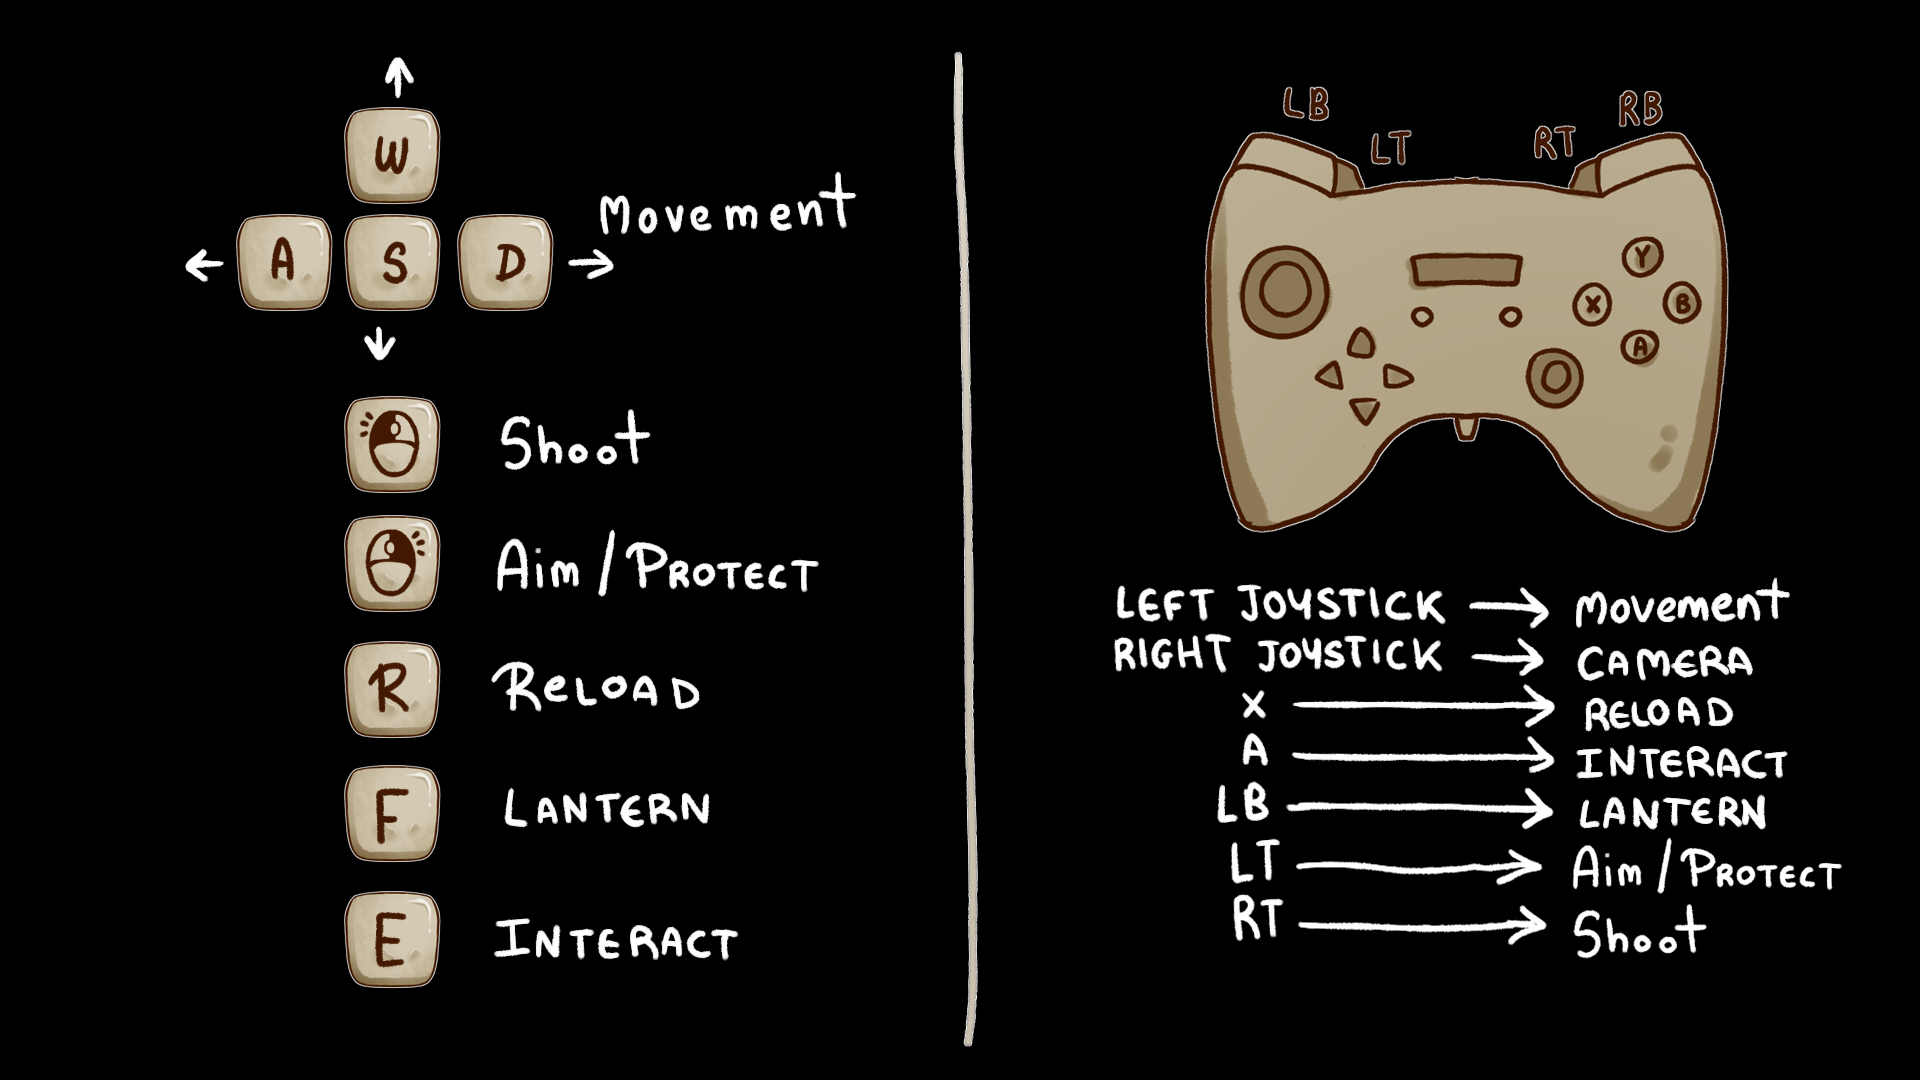 W
A S D
Movement
Shoot
Aim / PROTECT
R ReLOAD
F LANTERN
E INTERACT
LB RB
LT RT
Y
X B
A
LEFT JOYSTICK → Movement
RIGHT JOYSTICK → CAMERA
X → RELOAD
A → INTERACT
LB → LANTERN
LT → Aim / PROTECT
RT → Shoot